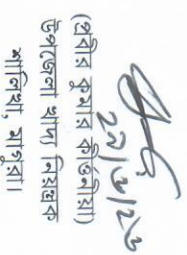 (প্রবীর কুমার কীর্ত্তনীয়া)
উপজেলা খাদ্য নিয়ন্ত্রক
শালিখা, মাগুরা।